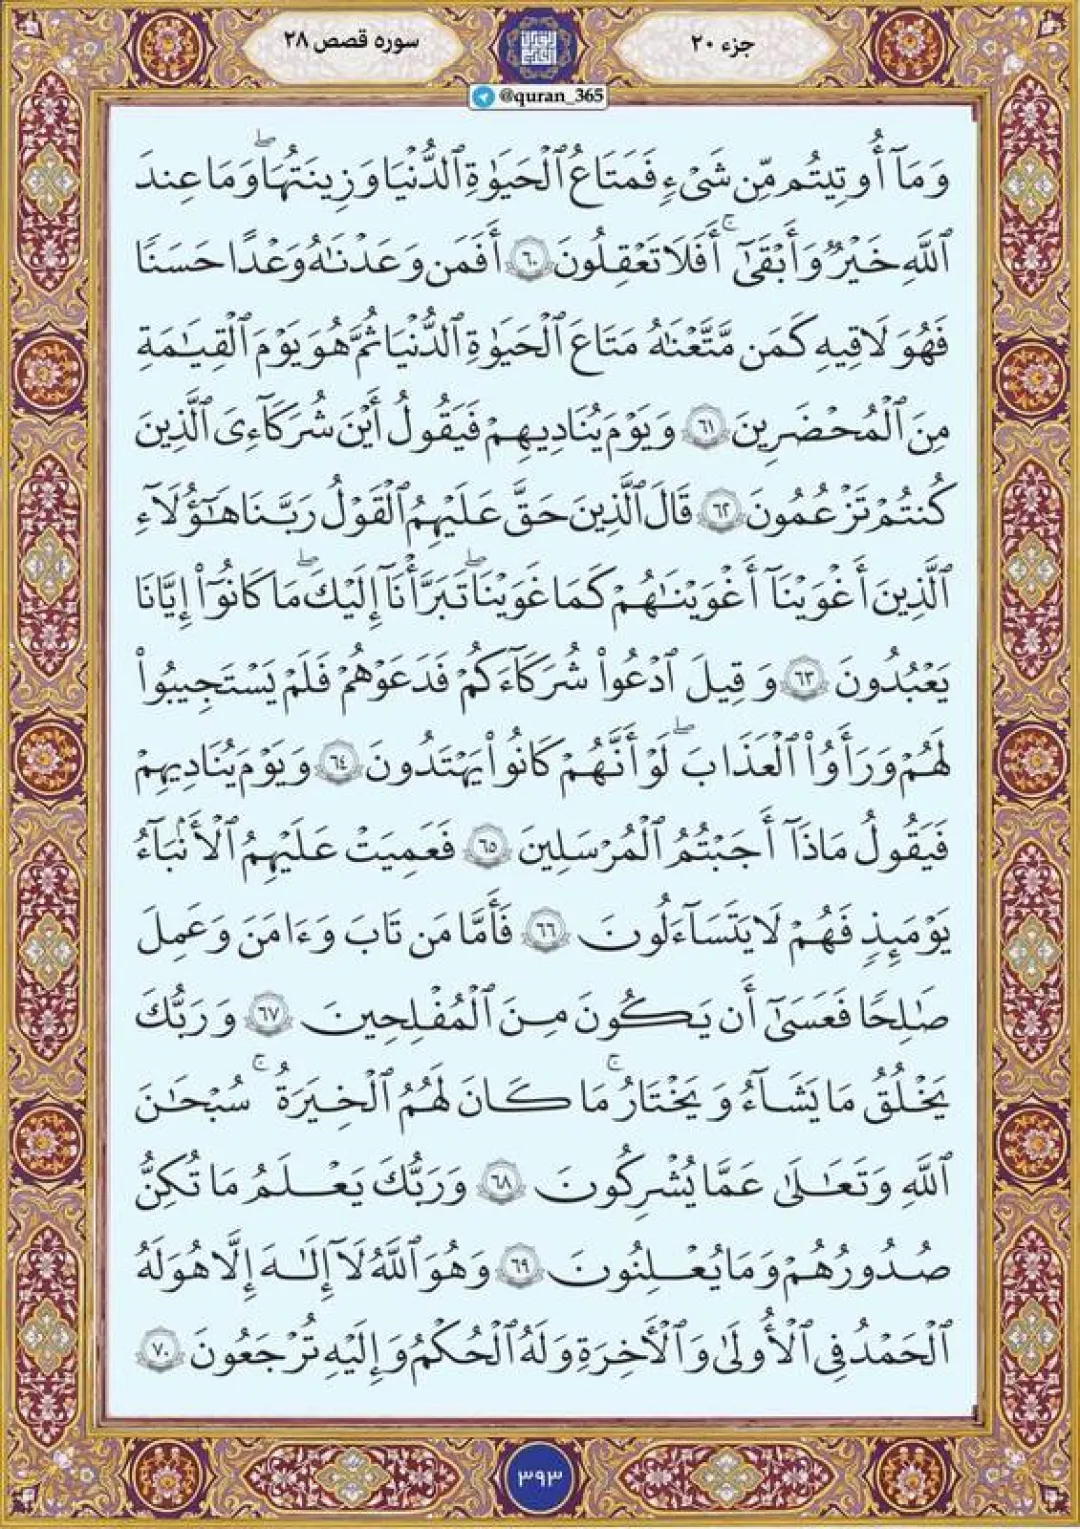 جزء ۲۰
سوره قصص ۲۸
@quran_365
وَمَآ أُوتِيتُم مِّن شَىْءٍ فَمَتَاعُ ٱلْحَيَوٰةِ ٱلدُّنْيَا وَزِينَتُهَا ۖ وَمَا عِندَ
ٱللَّهِ خَيْرٌ وَأَبْقَىٰٓ ۚ أَفَلَا تَعْقِلُونَ ٦٠ أَفَمَن وَعَدْنَـٰهُ وَعْدًا حَسَنًا
فَهُوَ لَـٰقِيهِ كَمَن مَّتَّعْنَـٰهُ مَتَاعَ ٱلْحَيَوٰةِ ٱلدُّنْيَا ثُمَّ هُوَ يَوْمَ ٱلْقِيَـٰمَةِ
مِنَ ٱلْمُحْضَرِينَ ٦١ وَيَوْمَ يُنَادِيهِمْ فَيَقُولُ أَيْنَ شُرَكَآءِىَ ٱلَّذِينَ
كُنتُمْ تَزْعُمُونَ ٦٢ قَالَ ٱلَّذِينَ حَقَّ عَلَيْهِمُ ٱلْقَوْلُ رَبَّنَا هَـٰٓؤُلَآءِ
ٱلَّذِينَ أَغْوَيْنَآ أَغْوَيْنَـٰهُمْ كَمَا غَوَيْنَا ۖ تَبَرَّأْنَآ إِلَيْكَ ۖ مَا كَانُوٓا۟ إِيَّانَا
يَعْبُدُونَ ٦٣ وَقِيلَ ٱدْعُوا۟ شُرَكَآءَكُمْ فَدَعَوْهُمْ فَلَمْ يَسْتَجِيبُوا۟
لَهُمْ وَرَأَوُا۟ ٱلْعَذَابَ ۖ لَوْ أَنَّهُمْ كَانُوا۟ يَهْتَدُونَ ٦٤ وَيَوْمَ يُنَادِيهِمْ
فَيَقُولُ مَاذَآ أَجَبْتُمُ ٱلْمُرْسَلِينَ ٦٥ فَعَمِيَتْ عَلَيْهِمُ ٱلْأَنۢبَآءُ
يَوْمَئِذٍ فَهُمْ لَا يَتَسَآءَلُونَ ٦٦ فَأَمَّا مَن تَابَ وَءَامَنَ وَعَمِلَ
صَـٰلِحًا فَعَسَىٰٓ أَن يَكُونَ مِنَ ٱلْمُفْلِحِينَ ٦٧ وَرَبُّكَ
يَخْلُقُ مَا يَشَآءُ وَيَخْتَارُ ۗ مَا كَانَ لَهُمُ ٱلْخِيَرَةُ ۚ سُبْحَـٰنَ
ٱللَّهِ وَتَعَـٰلَىٰ عَمَّا يُشْرِكُونَ ٦٨ وَرَبُّكَ يَعْلَمُ مَا تُكِنُّ
صُدُورُهُمْ وَمَا يُعْلِنُونَ ٦٩ وَهُوَ ٱللَّهُ لَآ إِلَـٰهَ إِلَّا هُوَ ۖ لَهُ
ٱلْحَمْدُ فِى ٱلْأُولَىٰ وَٱلْـَٔاخِرَةِ ۖ وَلَهُ ٱلْحُكْمُ وَإِلَيْهِ تُرْجَعُونَ ٧٠
۳۹۳